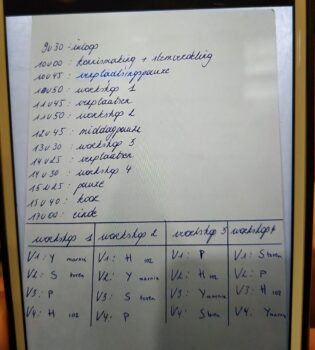 9u30 : inloop
10u00 : kennismaking + stemverdeling
10u45 : verplaatsingspauze
10u50 : workshop 1
11u45 : verplaatsen
11u50 : workshop 2
12u45 : middagpauze
13u30 : workshop 3
14u25 : verplaatsen
14u30 : workshop 4
15u25 : pauze
15u40 : koor
17u00 : einde
workshop 1 workshop 2 workshop 3 workshop 4
V1: Y marnix V1: H 102 V1: P V1: S toren
V2: S toren V2: Y marnix V2: H 102 V2: P
V3: P V3: S toren V3: Y marnix V3: H 102
V4: H 102 V4: P V4: S toren V4: Y marnix